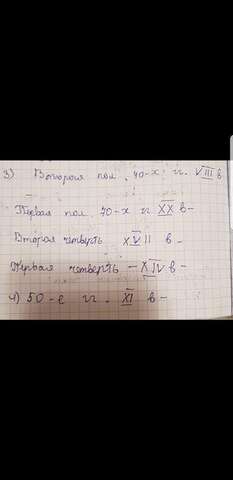 3) Вторая пол. 40-х гг. VIII в
Первая пол. 70-х гг XX в-
Вторая четверть XVII в-
Первая четверть - XIV в-
4) 50-е гг. XI в-